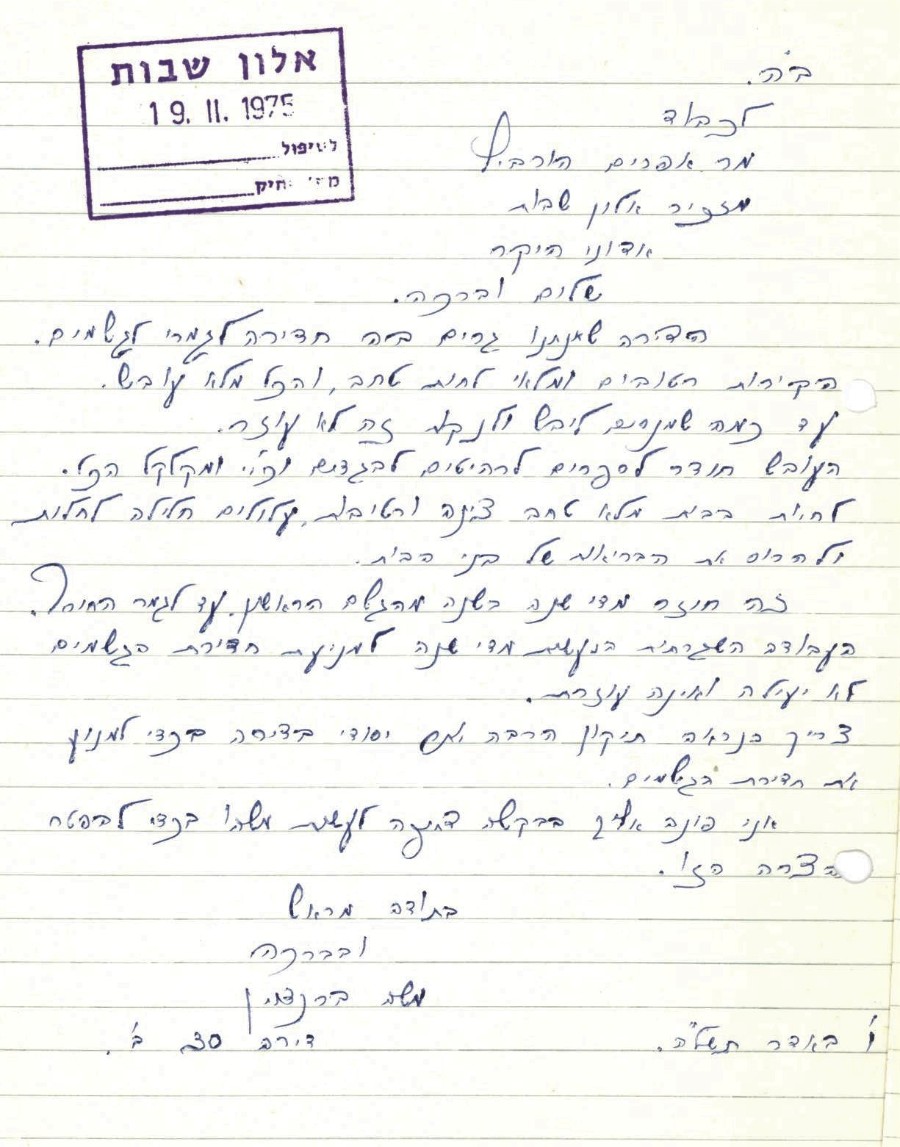 אלון שבות
19. II. 1975
לטיפול
תיק
ב"ה.
לכבוד
מר אפרים
מזכיר אלון שבות
אדוני היקר
שלום וברכה.
הדירה שאנחנו גרים בה חדירה לגמרי לגשמים.
הקירות רטובים ומלאי לחות טחב, והכל מלא עובש.
עד כמה שמנסים ליבש ולנקות זה לא עוזר.
העובש חודר לספרים לרהיטים לבגדים וכו' ומקלקל הכל.
לחיות בבית מלא טחב צינה ורטיבות, עלולים חלילה לחלות
ולהרוס את הבריאות של בני הבית.
זה חוזר מדי שנה בשנה מהגשם הראשון עד לגמר החורף.
העבודה השגרתית הנעשית מדי שנה למניעת חדירת הגשמים
לא יעילה ואינה עוזרת.
צריך כנראה תיקון הרבה יותר יסודי ביציקה בכדי למנוע
את חדירת הגשמים.
אני פונה אליך בבקשה לעשות משהו בכדי להפטר
הצרה הזו.
בתודה מראש
ובברכה
משה
דירה 30 ב'.
ו' באדר תשל"ה.